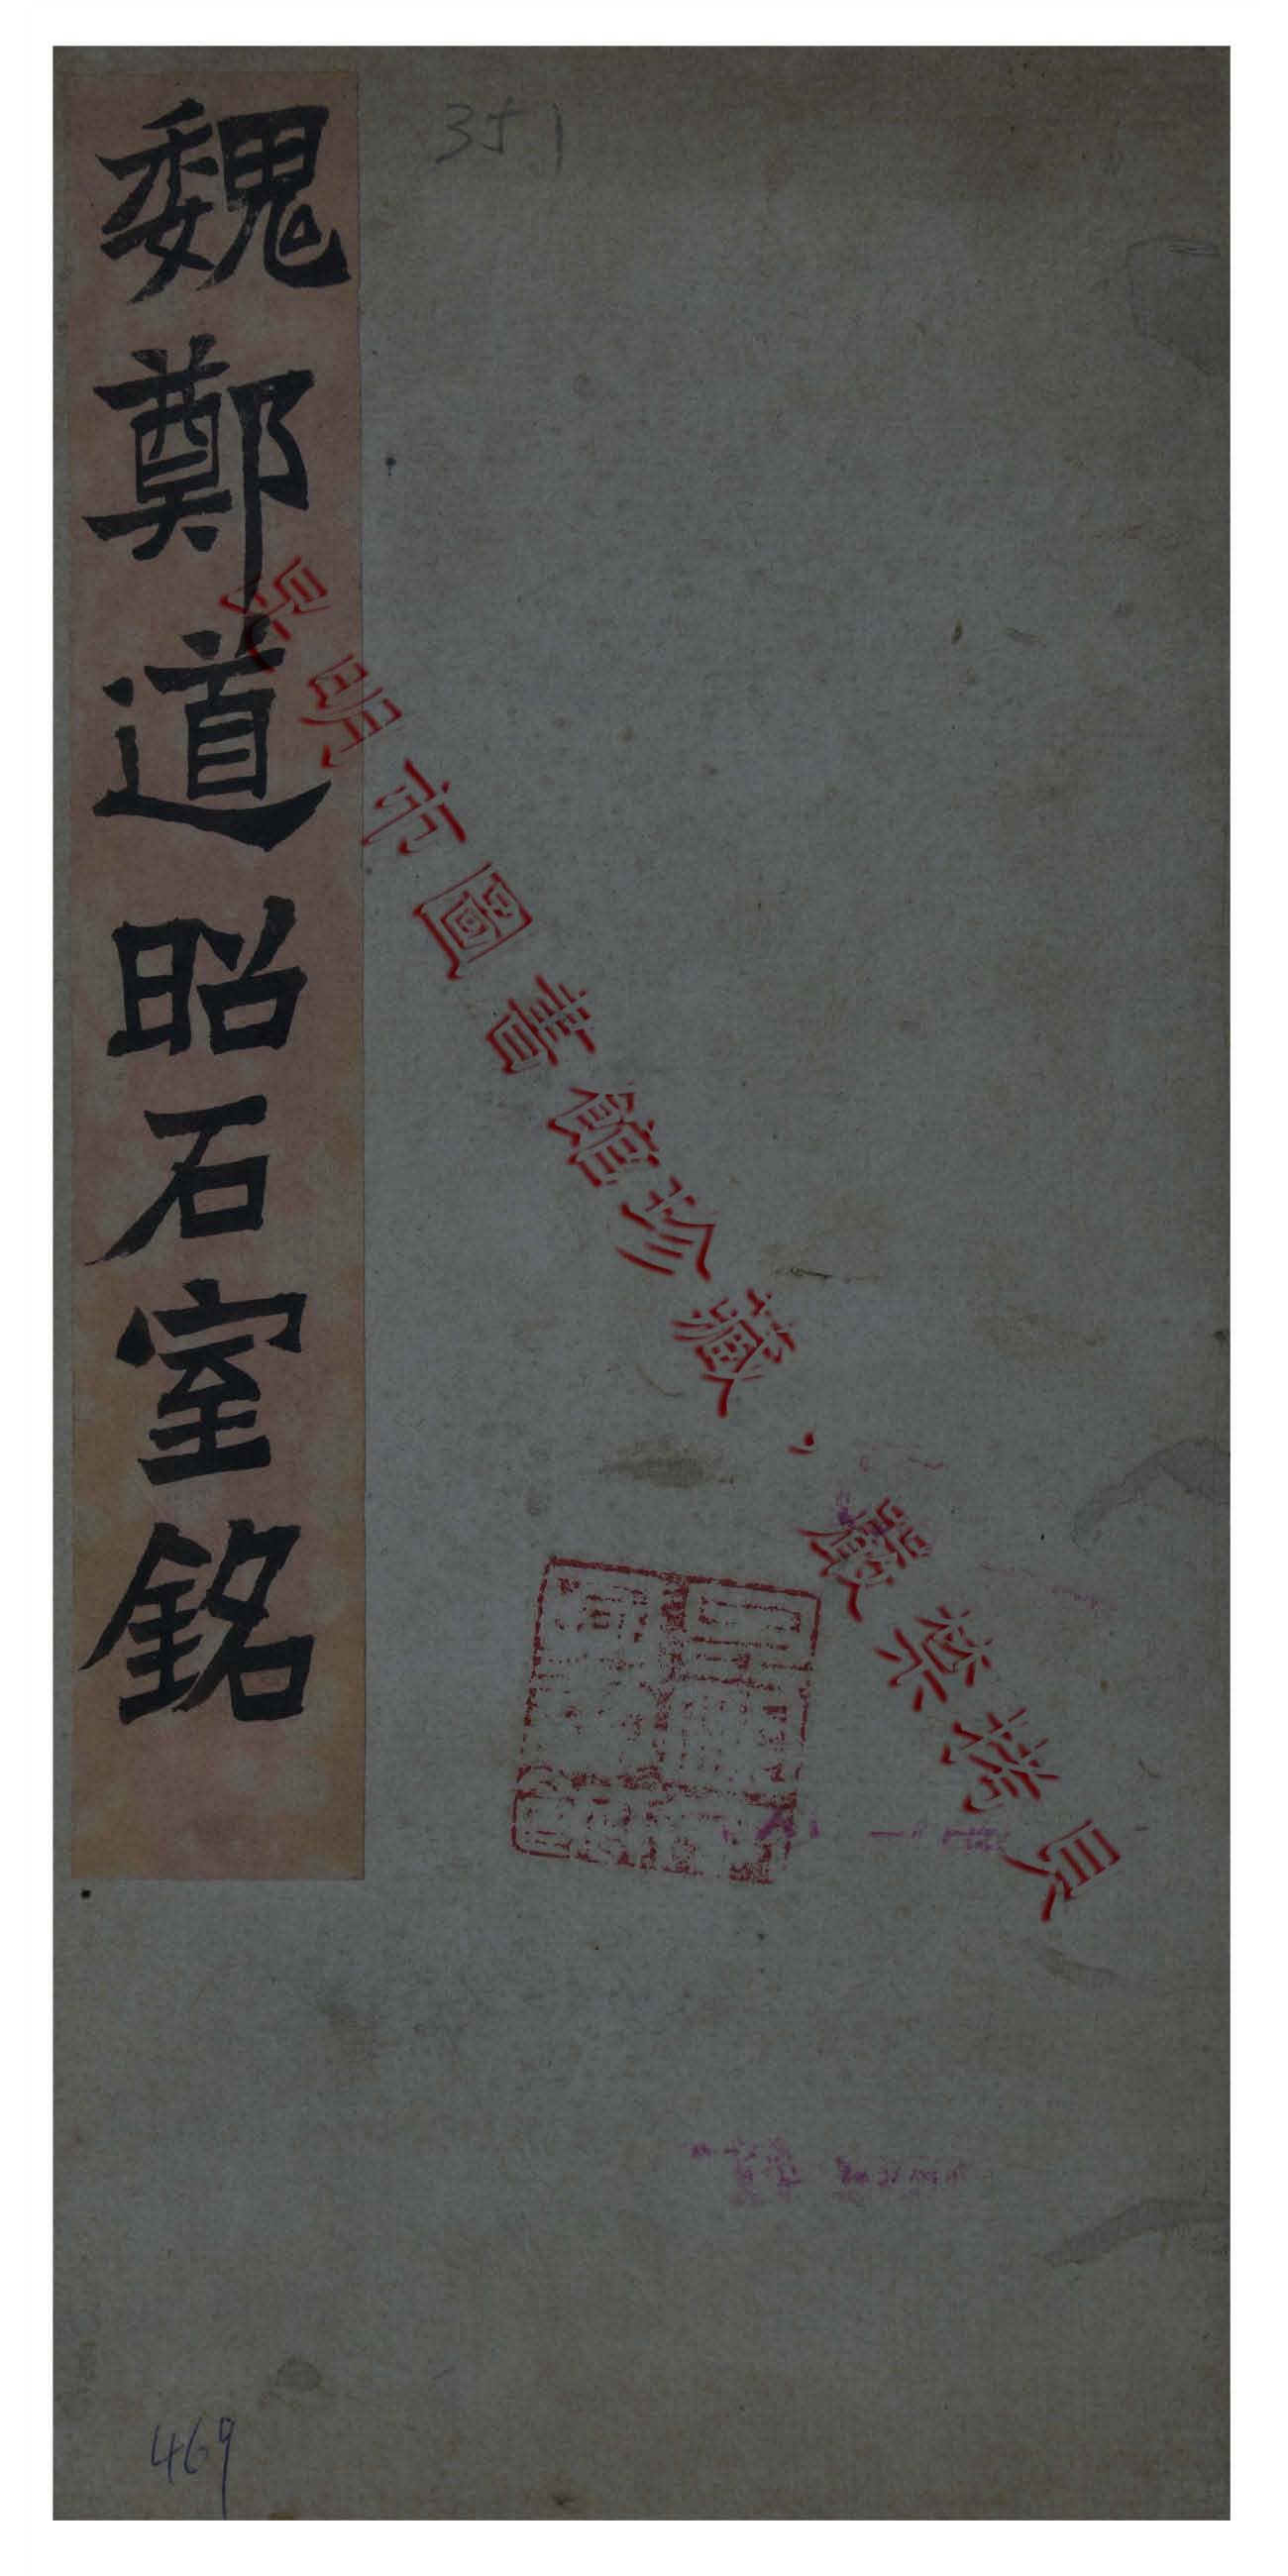 魏鄭道昭石室銘
351
昆明市圖書館珍藏，嚴禁拷貝
469